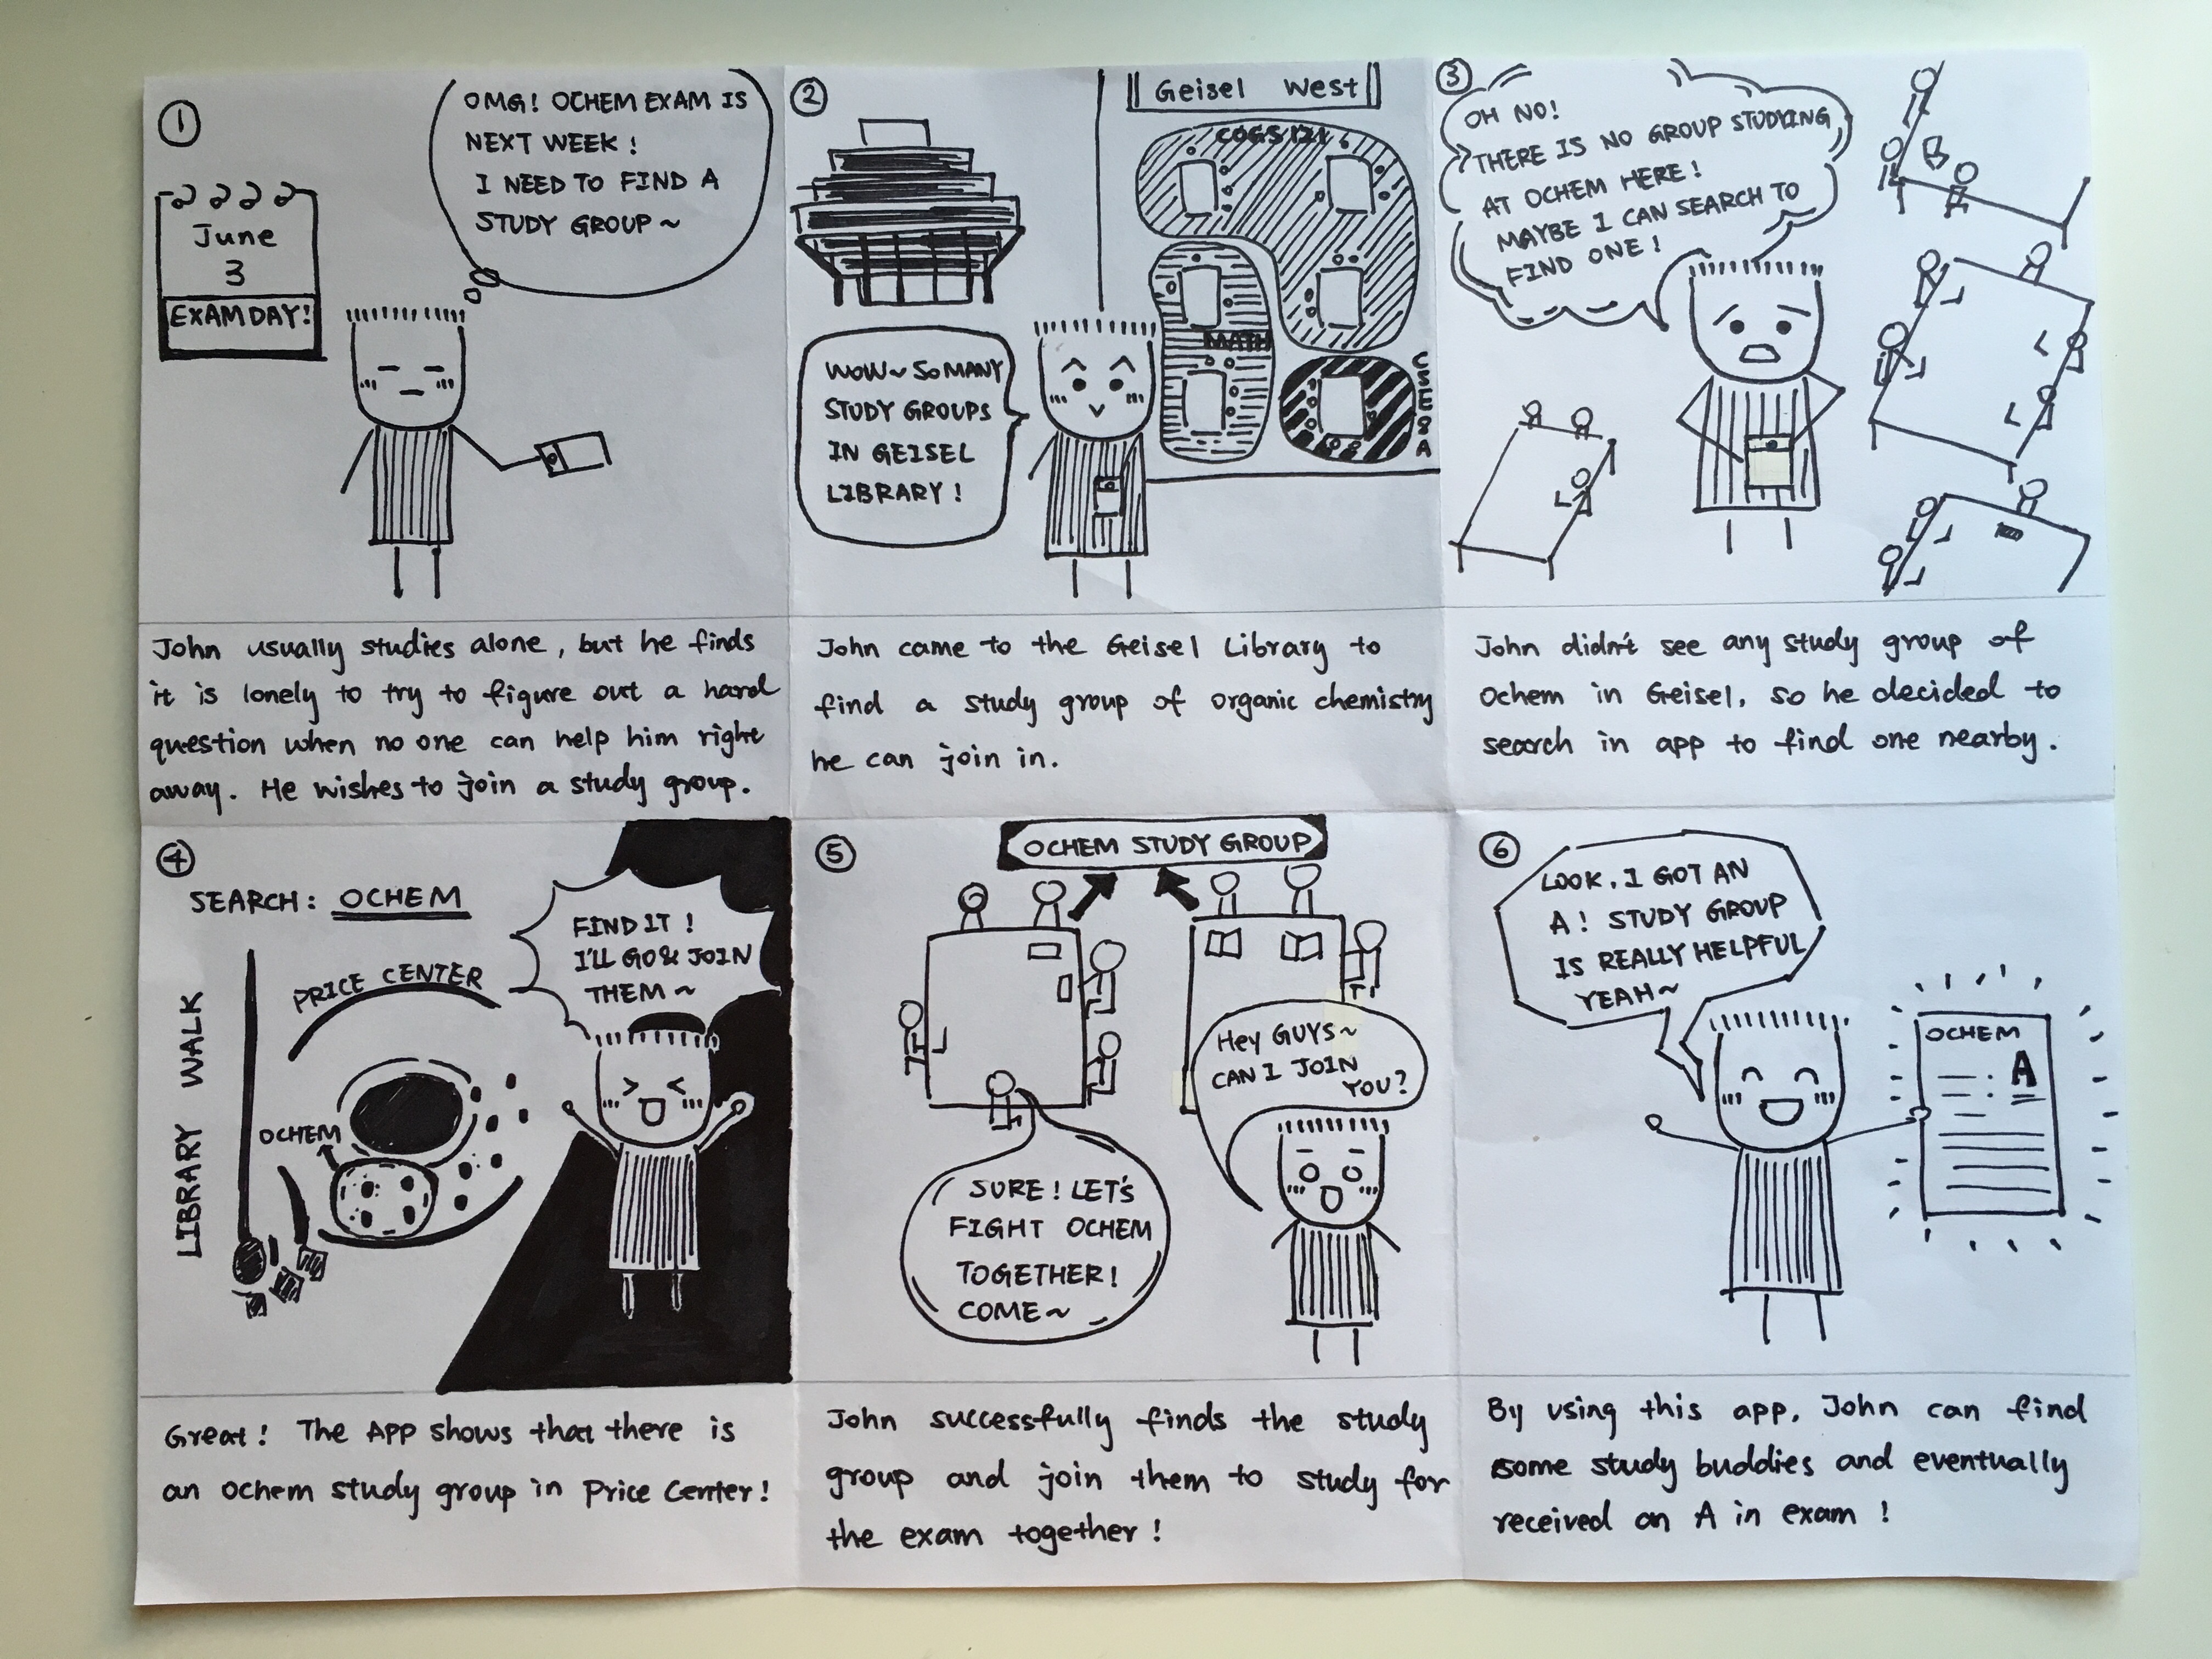 1
OMG! OCHEM EXAM IS
NEXT WEEK!
I NEED TO FIND A
STUDY GROUP ~
June
3
EXAM DAY!
John usually studies alone, but he finds
it is lonely to try to figure out a hard
question when no one can help him right
away. He wishes to join a study group.
2
Geisel West
COGS 121
MATH
CSE 8A
WOW~ SO MANY
STUDY GROUPS
IN GEISEL
LIBRARY!
John came to the Geisel Library to
find a study group of organic chemistry
he can join in.
3
OH NO!
THERE IS NO GROUP STUDYING
AT OCHEM HERE!
MAYBE I CAN SEARCH TO
FIND ONE!
John didn't see any study group of
Ochem in Geisel, so he decided to
search in app to find one nearby.
4
SEARCH: OCHEM
FIND IT!
I'LL GO & JOIN
THEM ~
PRICE CENTER
LIBRARY WALK
OCHEM
Great! The App shows that there is
an ochem study group in Price Center!
5
OCHEM STUDY GROUP
Hey GUYS~
CAN I JOIN
YOU?
SURE! LET'S
FIGHT OCHEM
TOGETHER!
COME~
John successfully finds the study
group and join them to study for
the exam together!
6
LOOK, I GOT AN
A! STUDY GROUP
IS REALLY HELPFUL
YEAH~
OCHEM
A
By using this app, John can find
some study buddies and eventually
received an A in exam!